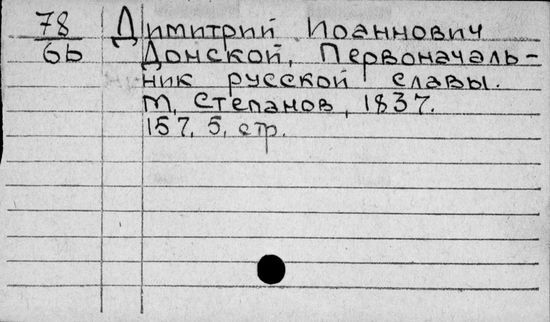 78 Димитрий Иоаннович
6Б Донской, Первоначаль-
ник русской славы.
М, Степанов, 1837.
157, 5, стр.